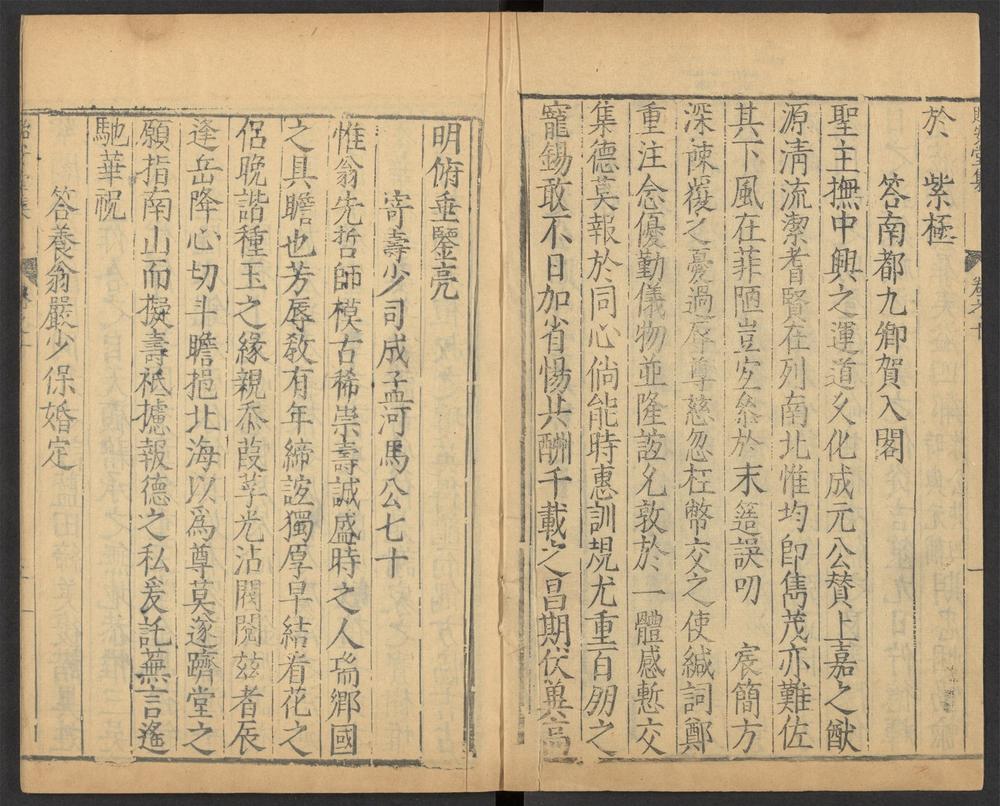 於　紫極
答南都九卿賀入閣
聖主撫中興之運道久化成元公贊上嘉之猷
源清流潔耆賢在列南北惟均卽雋茂亦難佐
其下風在菲陋豈宜叅於末簉誤叨　宸簡方
深諫覆之憂過辱尊慈忽枉幣交之使緘詞鄭
重注念優勤儀物並隆誼尤敦於一體感慙交
集德莫報於同心倘能時惠訓規尤重百朋之
寵錫敢不日加省惕共酬千載之昌期伏冀高
明俯垂鑒亮
寄壽少司成孟河馬公七十
惟翁先哲師模古稀崇壽誠盛時之人瑞鄉國
之具瞻也芳辱教有年締誼獨厚早結看花之
侶晚諧種玉之緣親忝葭莩光沾閥閱兹者辰
逢岳降心切斗瞻挹北海以爲尊莫遂躋堂之
願指南山而擬壽袛攄報德之私爰託蕪言遙
馳華祝
答養翁嚴少保婚定